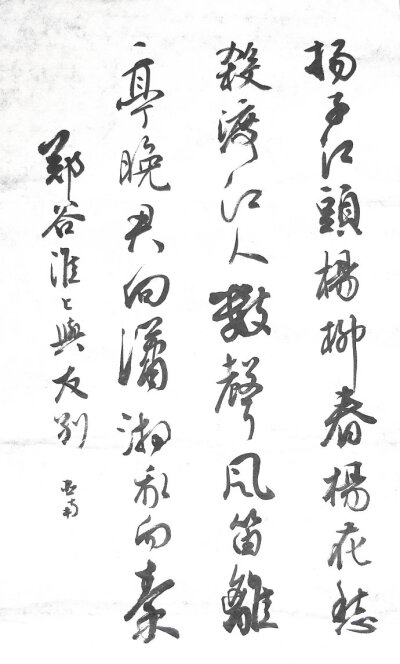 扬子江頭楊柳春楊花愁
殺渡江人數聲风笛離
亭晚君向瀟湘我向秦
鄭谷淮上與友别